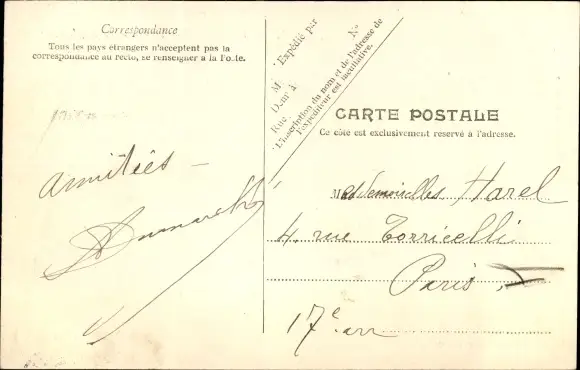 Correspondance
Tous les pays étrangers n'acceptent pas la
correspondance au recto, se renseigner à la Poste.
Nº
Expédié par
M
Demt à
Rue
L'inscription du nom et de l'adresse de
l'expéditeur est facultative.
CARTE POSTALE
Ce côté est exclusivement réservé à l'adresse.
Amitiés —
Mesdemoiselles Harel
4. rue Torricelli
Paris
17e arr